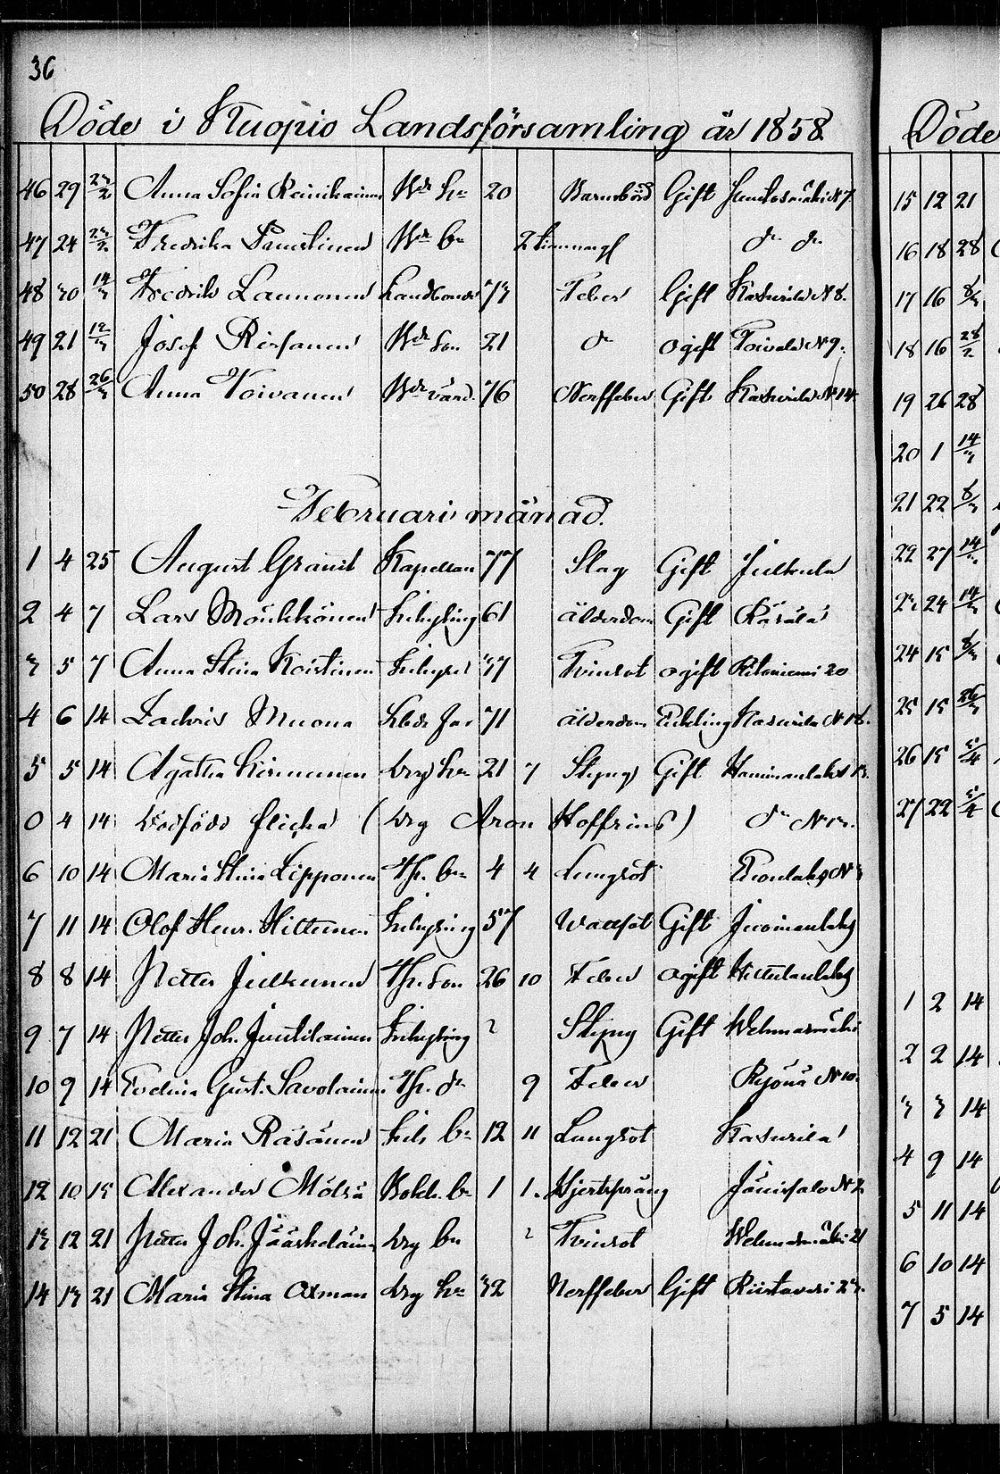 36
Döde i Kuopio Landsförsamling år 1858
46 29 23/2 Anna Sofia Reinikainen Bde hu 20 Barnsbörd Gift Juntesmäki N 7
47 24 23/2 Fredrika Paustinen Bde bn 2 timmar gl do do
48 30 14/3 Fredrik Launonen Landbonde 73 Feber Gift Kasurila N 8.
49 21 12/3 Josef Rissanen Bde son 21 do ogift Toivala N 9.
50 28 26/3 Anna Voivanen Bde värd. 76 Nerffeber Gift Kasurila N 14
Februari månad.
1 4 25 August Granit Kapellan 77 Slag Gift Julkula
2 4 7 Lars Mönkkönen Inhysling 61 älderdom Gift Räsälä
3 5 7 Anna Stina Koistinen Inhyses 37 Tvinsot ogift Ritoniemi 20
4 6 14 Zachris Muona 71 älderdom Enkling Kasurila N 18.
5 5 14 Agatha Hirvonen drg hu 21 7 Styng Gift Haminanlaks 13.
0 4 14 Dödföds flicka (drg Aron Hoffrin) do N 13.
6 10 14 Maria Stina Lipponen Thr. bn 4 4 Lungsot N 3
7 11 14 Olof Henr. Hiltunen Inhysing 57 Wattsot Gift
8 8 14 Petter Julkunen Thr. Son 26 10 Feber ogift
9 7 14 Petter Joh. Juutilainen Inhysling ? Styng Gift Wehmasmäki
10 9 14 Evelina Gust. Savolainen Thr. dr 9 Feber Ryönä N 10.
11 12 21 Maria Räsänen Inh bn 12 11 Lungsot Kasurila
12 10 15 Alexander Mölsä Bokh. bn 1 1. Hjertsprång Jänissalo N 2
13 12 21 Petter Joh. Jääskeläinen drg bn ? Tvinsot Wehmasmäki 21
14 13 21 Maria Stina Axman drg hu 32 Nerffeber Gift Riistavesi 23.
Döde
15 12 21
16 18 28
17 16 8/3
18 16 28/2
19 26 28
20 1 14/3
21 22 8/3
22 27 14/3
23 24 14/3
24 15 8/3
25 15 26/3
26 15 5/4
27 22 5/4
1 2 14
2 2 14
3 3 14
4 9 14
5 11 14
6 10 14
7 5 14